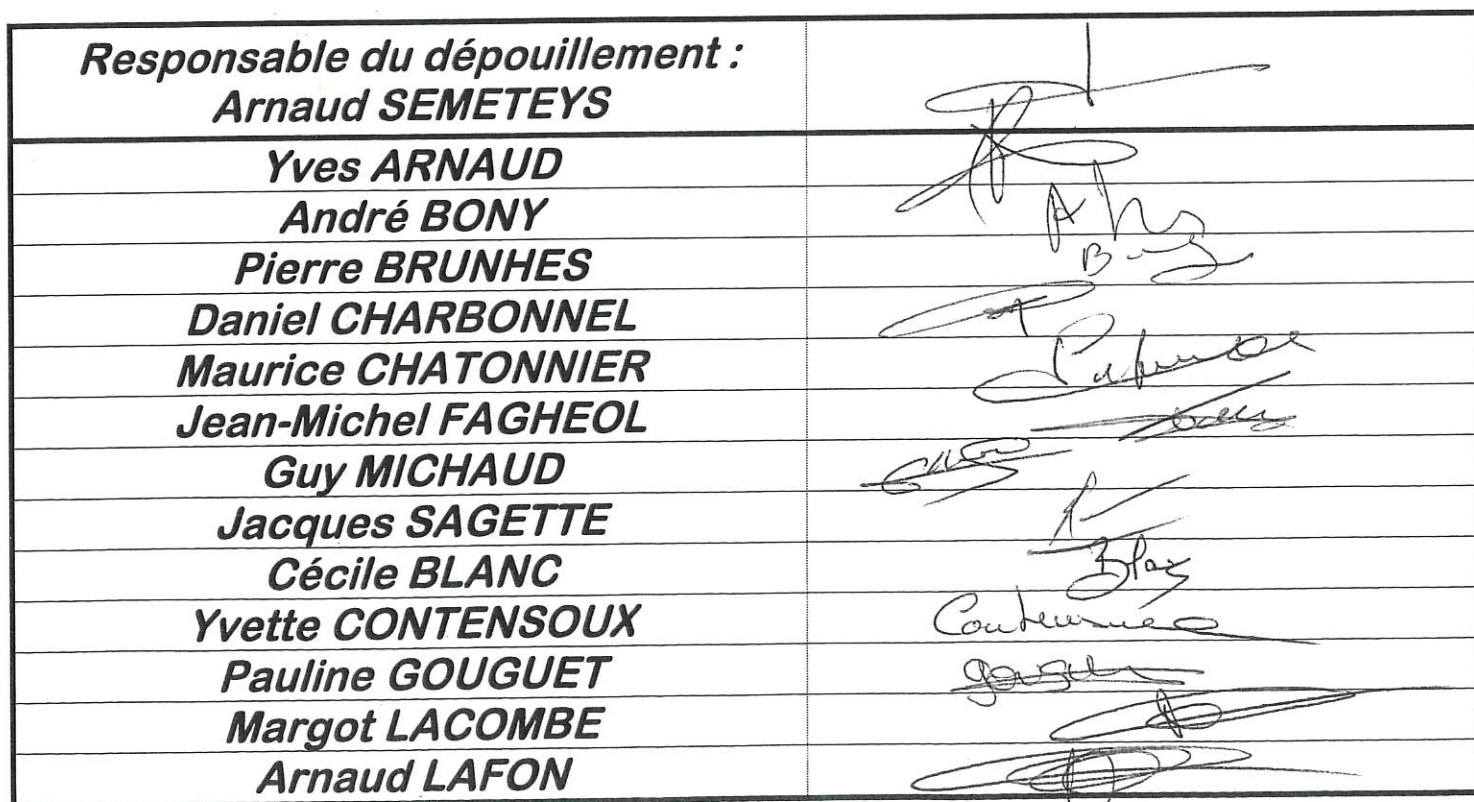 Responsable du dépouillement :
Arnaud SEMETEYS
Yves ARNAUD
André BONY
Pierre BRUNHES
Daniel CHARBONNEL
Maurice CHATONNIER
Jean-Michel FAGHEOL
Guy MICHAUD
Jacques SAGETTE
Cécile BLANC
Yvette CONTENSOUX
Pauline GOUGUET
Margot LACOMBE
Arnaud LAFON